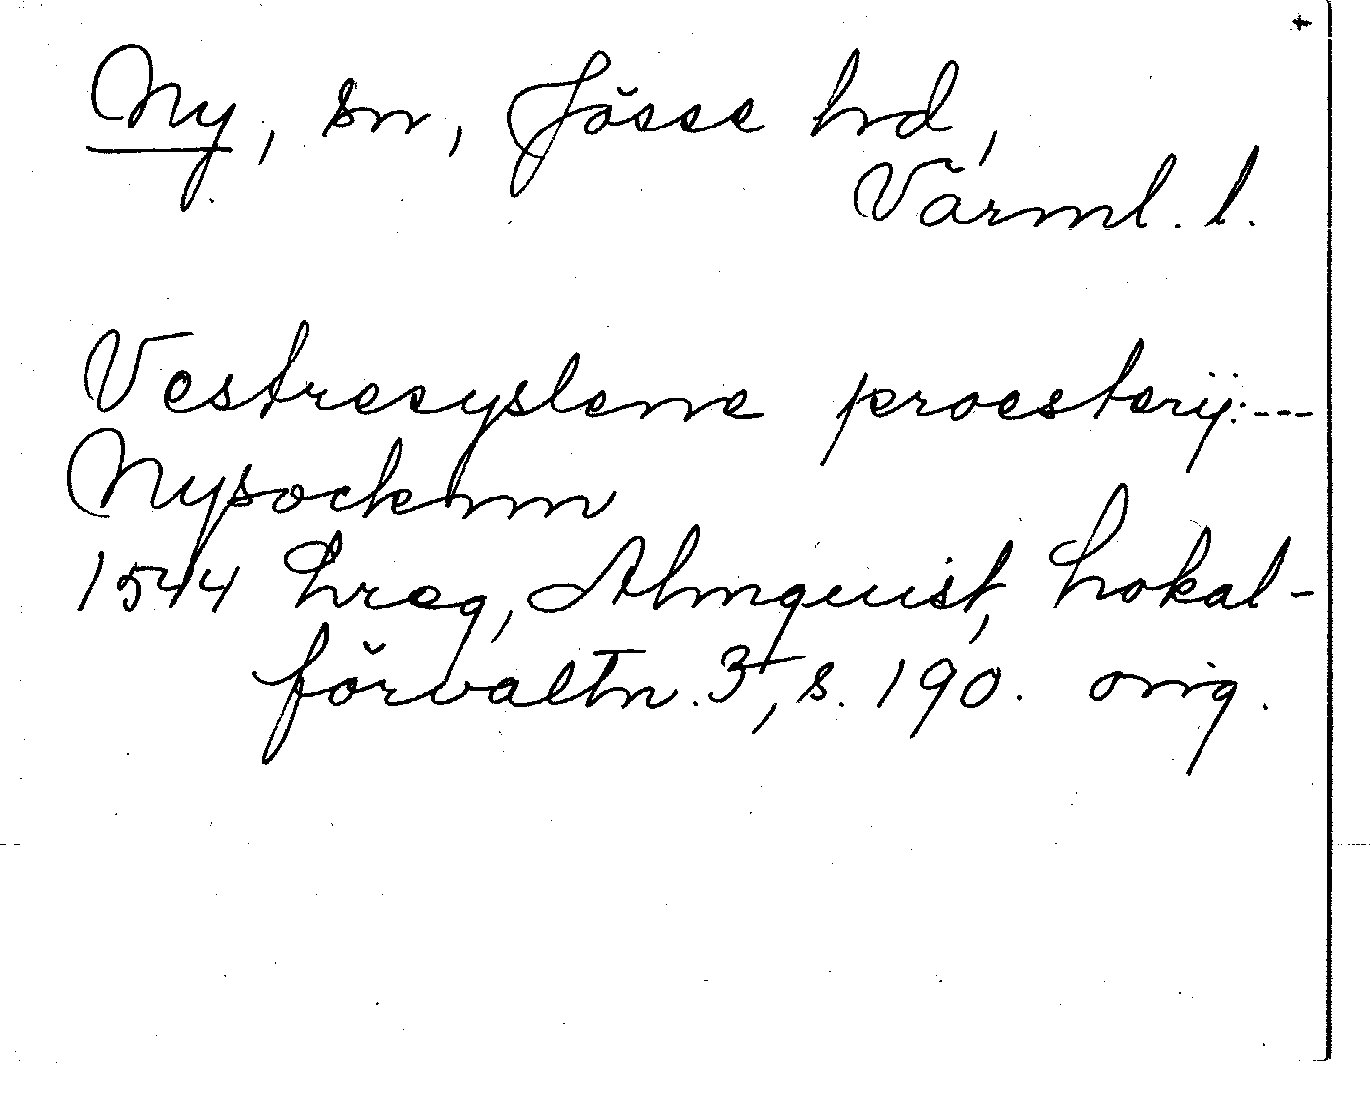 Ny, sn, Jösse hd,
Värml. l.
Vestresyslenne proesterij: ---
Nysocknn
1544 Lreg, Almquist, Lokal-
förvaltn. 3, s. 190. orig.